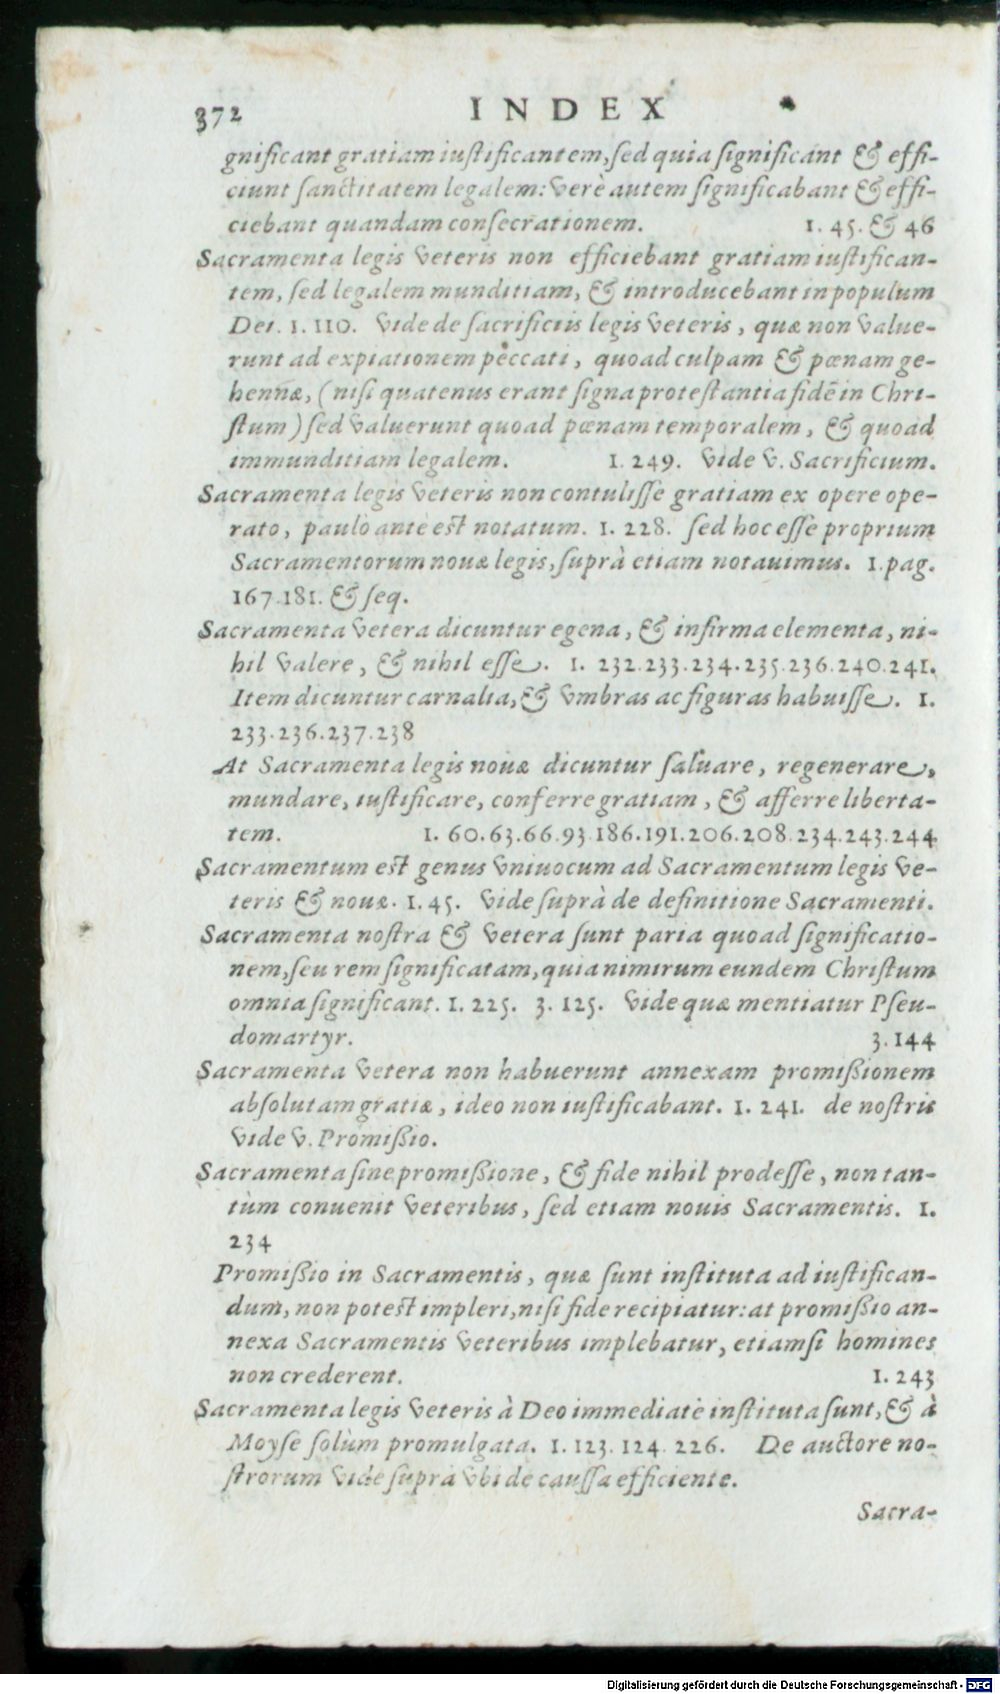 372 INDEX
gnificant gratiam iustificantem, sed quia significant & effi-
ciunt sanctitatem legalem: verè autem significabant & effi-
ciebant quandam consecrationem. 1. 45. & 46
Sacramenta legis veteris non efficiebant gratiam iustifican-
tem, sed legalem munditiam, & introducebant in populum
Dei. 1. 110. Vide de sacrificiis legis veteris, quæ non value-
runt ad expiationem peccati, quoad culpam & pœnam ge-
hennæ, (nisi quatenus erant signa protestantia fidē in Chri-
stum) sed valuerunt quoad pœnam temporalem, & quoad
immunditiam legalem. 1. 249. Vide V. Sacrificium.
Sacramenta legis veteris non contulisse gratiam ex opere ope-
rato, paulò antè est notatum. 1. 228. sed hoc esse proprium
Sacramentorum nouæ legis, suprà etiam notauimus. 1. pag.
167. 181. & seq.
Sacramenta vetera dicuntur egena, & infirma elementa, ni-
hil valere, & nihil esse. 1. 232. 233. 234. 235. 236. 240. 241.
Item dicuntur carnalia, & vmbras ac figuras habuisse. 1.
233. 236. 237. 238
At Sacramenta legis nouæ dicuntur saluare, regenerare,
mundare, iustificare, conferre gratiam, & afferre liberta-
tem. 1. 60. 63. 66. 93. 186. 191. 206. 208. 234. 243. 244
Sacramentum est genus vniuocum ad Sacramentum legis ve-
teris & nouæ. 1. 45. Vide suprà de definitione Sacramenti.
Sacramenta nostra & vetera sunt paria quoad significatio-
nem, seu rem significatam, quia nimirum eundem Christum
omnia significant. 1. 225. 3. 125. Vide quæ mentiatur Pseu-
domartyr. 3. 144
Sacramenta vetera non habuerunt annexam promißionem
absolutam gratiæ, ideo non iustificabant. 1. 241. de nostris
vide V. Promißio.
Sacramenta sine promißione, & fide nihil prodesse, non tan-
tùm conuenit veteribus, sed etiam nouis Sacramentis. 1.
234
Promißio in Sacramentis, quæ sunt instituta ad iustifican-
dum, non potest impleri, nisi fide recipiatur: at promißio an-
nexa Sacramentis veteribus implebatur, etiamsi homines
non crederent. 1. 243
Sacramenta legis veteris à Deo immediatè instituta sunt, & à
Moyse solùm promulgata. 1. 123. 124. 226. De auctore no-
strorum vide suprà vbi de caussa efficiente.
Sacra-
Digitalisierung gefördert durch die Deutsche Forschungsgemeinschaft - DFG